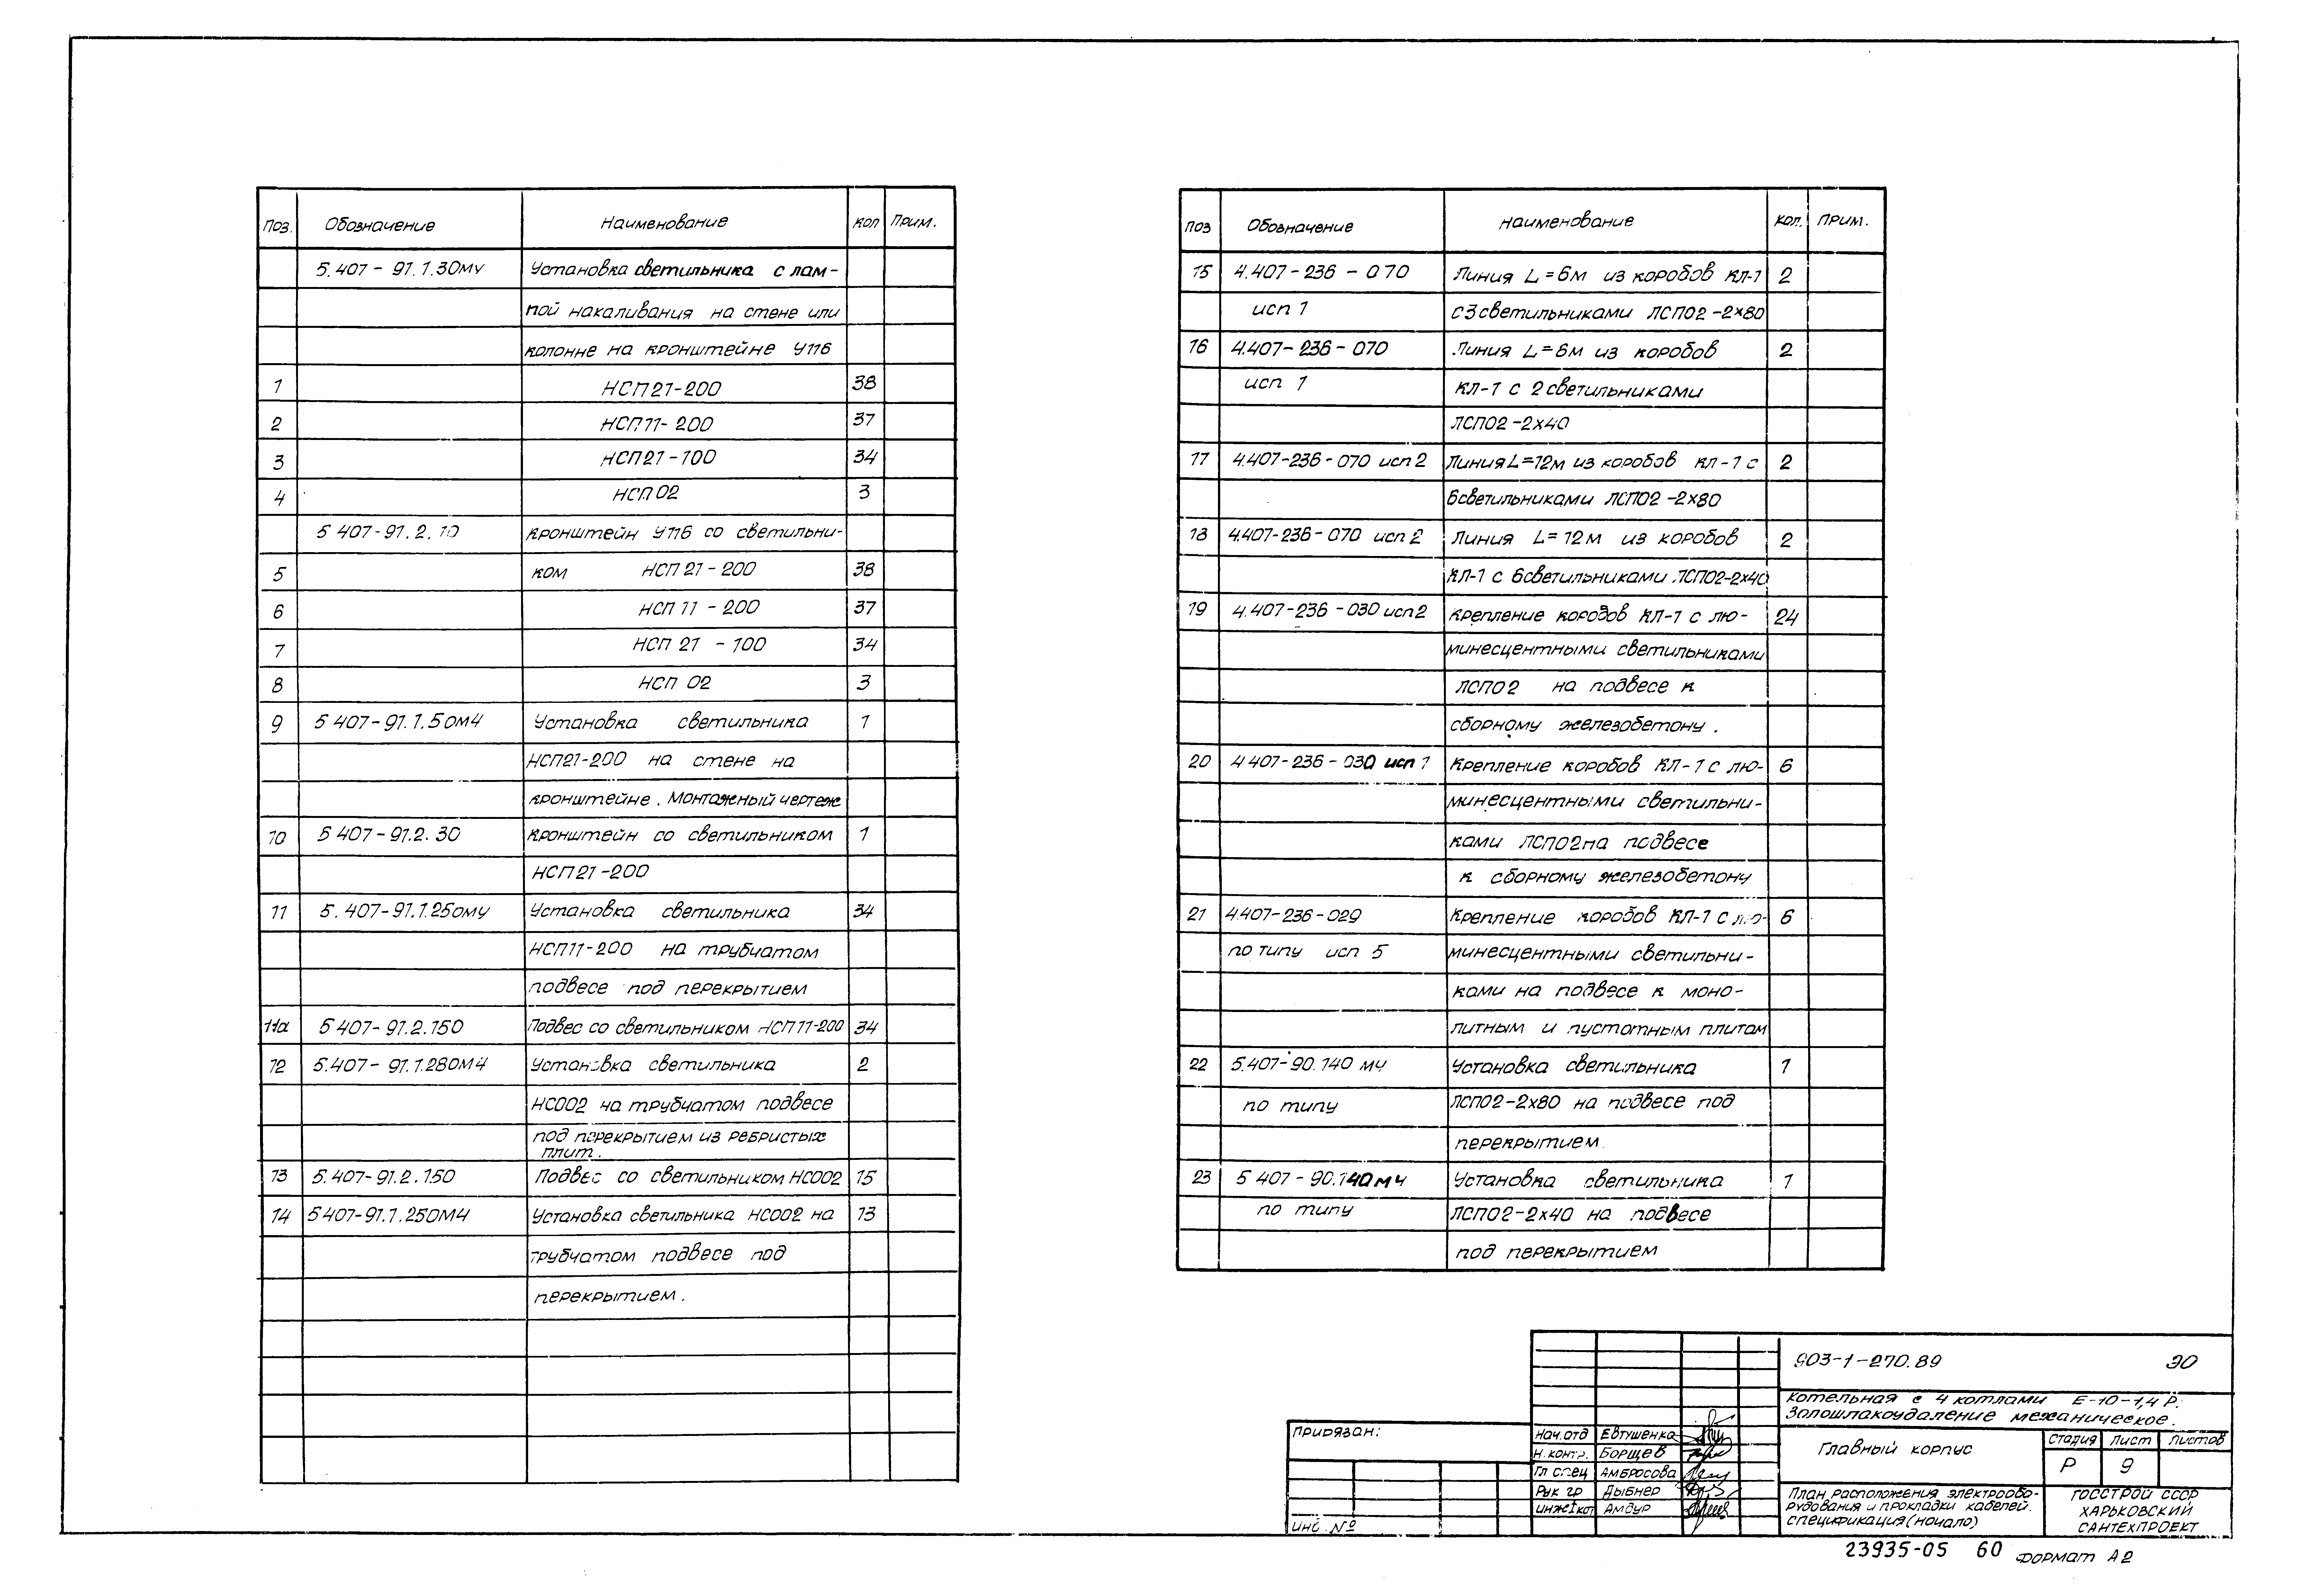 Поз. Обозначение Наименование Кол Прим.
5.407 - 91.1.30мч Установка светильника с лам-
пой накаливания на стене или
колонне на кронштейне У116
1 НСП21-200 38
2 НСП11-200 37
3 НСП21-100 34
4 НСП02 3
5 407-91.2.10 Кронштейн У116 со светильни-
5 ком НСП 21-200 38
6 НСП 11 - 200 37
7 НСП 21 - 100 34
8 НСП 02 3
9 5 407-91.1.50мч Установка светильника 1
НСП21-200 на стене на
кронштейне. Монтажный чертеж
10 5 407-91.2.30 Кронштейн со светильником 1
НСП21-200
11 5.407-91.1.250мч Установка светильника 34
НСП11-200 на трубчатом
подвесе под перекрытием
11а 5 407-91.2.150 Подвес со светильником НСП11-200 34
12 5.407- 91.1.280мч Установка светильника 2
НСО02 на трубчатом подвесе
под перекрытием из ребристых
плит.
13 5.407-91.2.150 Подвес со светильником НСО02 15
14 5407-91.1.250мч Установка светильника НСО02 на 13
трубчатом подвесе под
перекрытием.
Поз Обозначение Наименование Кол. Прим.
15 4.407-236-070 Линия L=6м из коробов КЛ-1 2
исп 1 с 3 светильниками ЛСП02-2х80
16 4.407-236-070 Линия L=6м из коробов 2
исп 1 КЛ-1 с 2 светильниками
ЛСП02-2х40
17 4.407-236-070 исп 2 Линия L=12м из коробов КЛ-1 с 2
6 светильниками ЛСП02-2х80
18 4.407-236-070 исп 2 Линия L=12м из коробов 2
КЛ-1 с 6 светильниками ЛСП02-2х40
19 4.407-236-030 исп 2 Крепление коробов КЛ-1 с лю- 24
минесцентными светильниками
ЛСП02 на подвесе к
сборному железобетону.
20 4 407-236-030 исп 1 Крепление коробов КЛ-1 с лю- 6
минесцентными светильни-
ками ЛСП02 на подвесе
к сборному железобетону
21 4.407-236-029 Крепление коробов КЛ-1 с лю- 6
по типу исп 5 минесцентными светильни-
ками на подвесе к моно-
литным и пустотным плитам
22 5.407-90.140 мч Установка светильника 1
по типу ЛСП02-2х80 на подвесе под
перекрытием
23 5 407-90.140мч Установка светильника 1
по типу ЛСП02-2х40 на подвесе
под перекрытием
903-1-270.89 ЭО
Котельная с 4 котлами Е-10-1,4 Р.
Золошлакоудаление механическое.
Привязан:
Инв. №
Нач.отд Евтушенко
Н.контр. Борщев
Гл спец Амбросова
Рук гр Дыбнер
Инж Iкат Амдур
Главный корпус
Стадия Лист Листов
Р 9
План расположения электрообо-
рудования и прокладки кабелей.
Спецификация (начало)
ГОССТРОЙ СССР
ХАРЬКОВСКИЙ
САНТЕХПРОЕКТ
23935-05 60 Формат А2